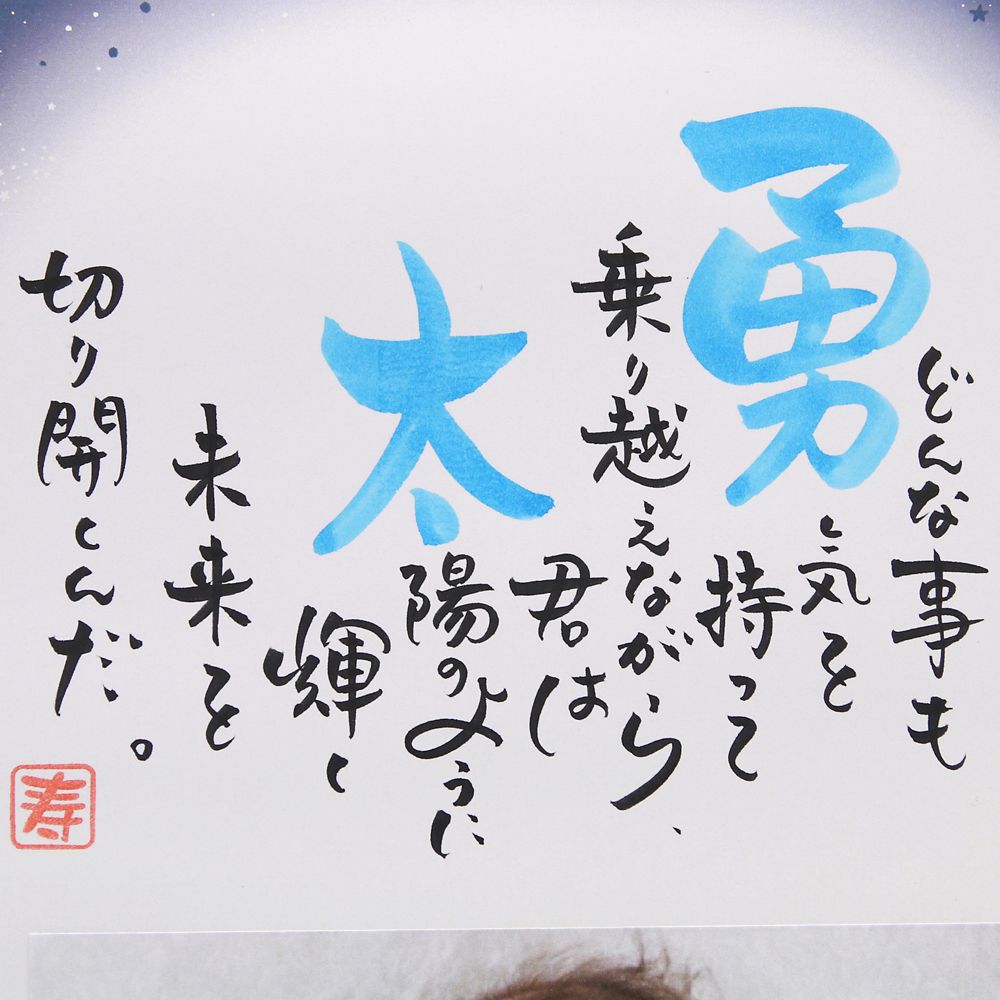 勇太
どんな事も
勇気を
持って
乗り越えながら、
君は
太陽のように
輝く
未来を
切り開くんだ。
寿